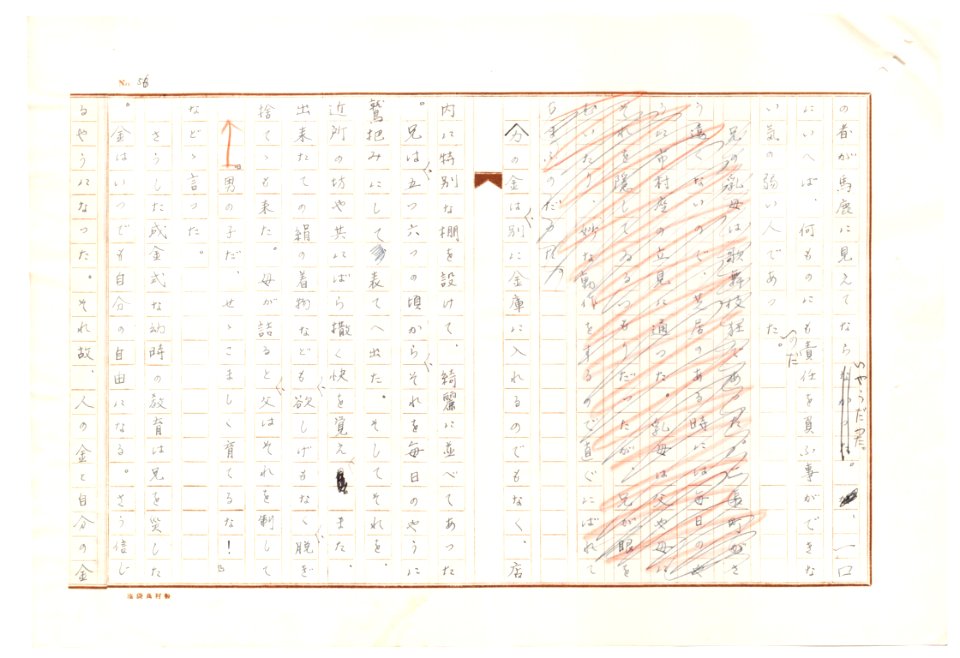 No. 56
の者が馬鹿に見えてならないやうだつた。一口
にいへば、何ものにも責任を負ふ事ができな
い気の弱い人であつたのだ。
兄の乳母は歌舞伎狂であつた。
遠くないので、芝居のある時には毎日のや
うに市村座の立見に通つた。乳母は父や母に
それを隠してゐるつもりだつたが、兄が眼を
むいたり、妙な動作をするので直ぐにばれて
しまふのだつた。
分の金は別に金庫に入れるのでもなく、店
内に特別な棚を設けて、綺麗に並べてあつた
。兄は五つ六つの頃からそれを毎日のやうに
鷲掴みにして表てへ出た。そしてそれを、
近所の坊や共にばら撒く快を覚えた。また、
出来たての絹の着物なども欲しげもなく脱ぎ
捨てゝも来た。母が詰ると父はそれを制して
「男の子だ、せゝこましく育てるな!」
などゝ言つた。
さうした成金式な幼時の教育は兄を災した
。金はいつでも自分の自由になる。さう信じ
るやうになつた。それ故、人の金と自分の金